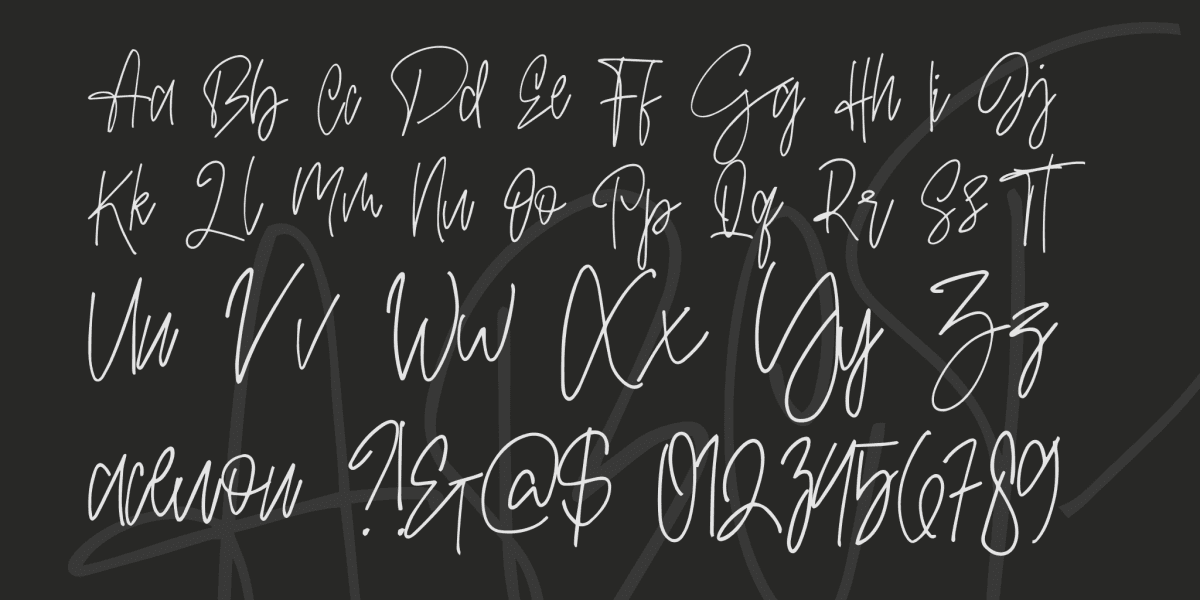 Aa Bb Cc Dd Ee Ff Gg Hh Ii Jj
Kk Ll Mm Nn Oo Pp Qq Rr Ss Tt
Uu Vv Ww Xx Yy Zz
?!&@$ 0123456789